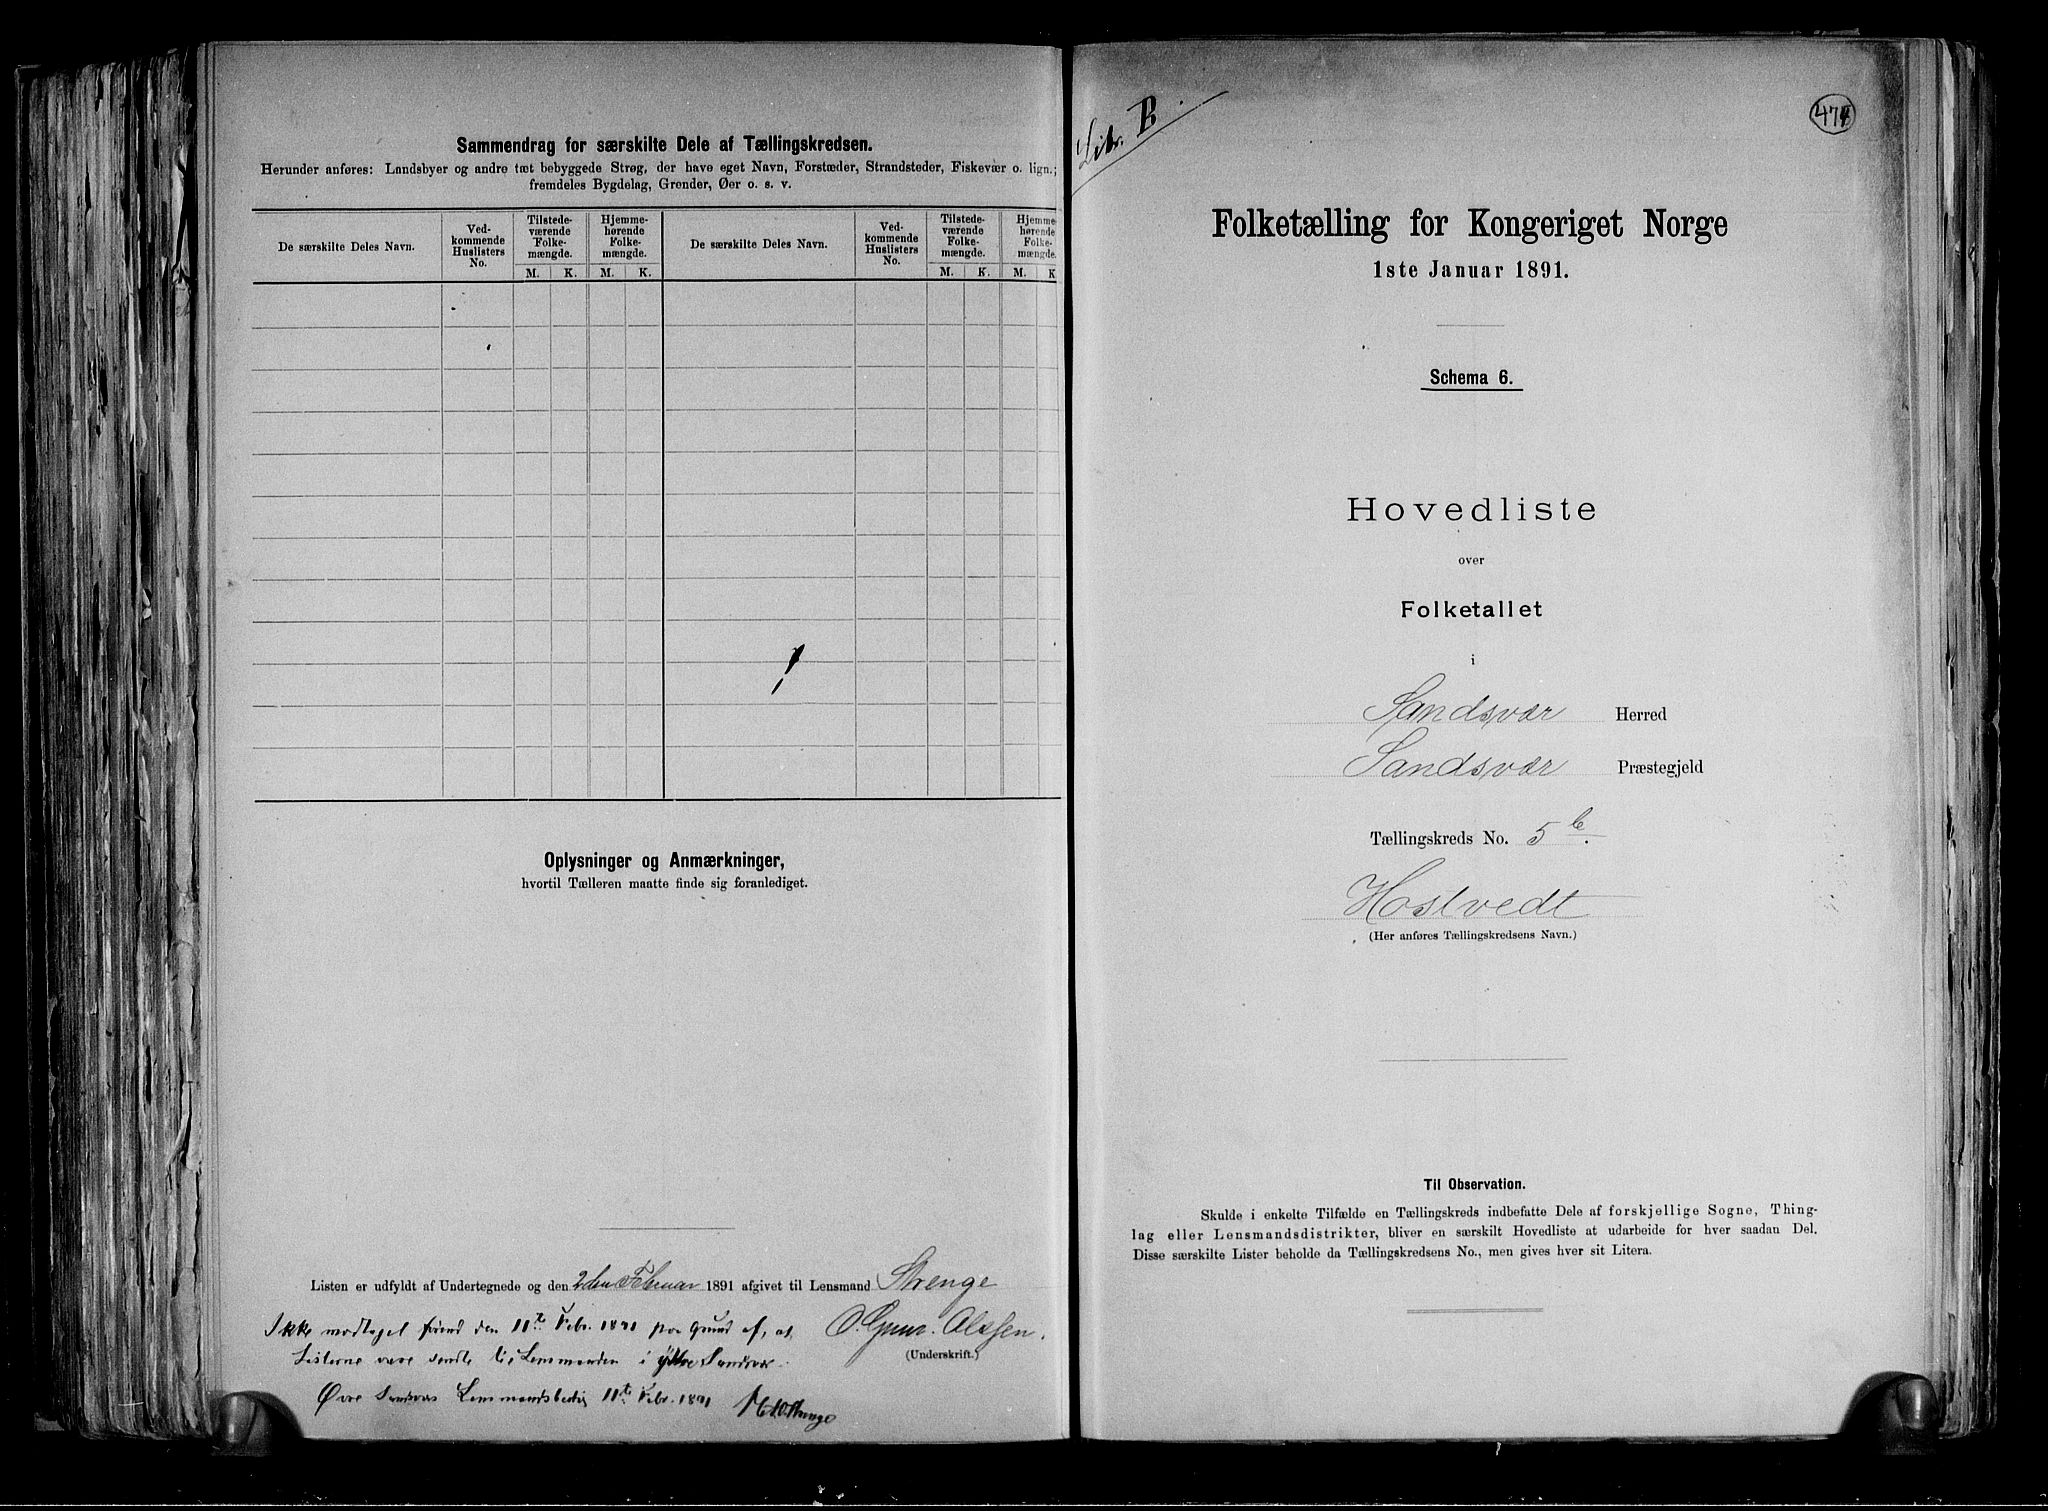 Sammendrag for særskilte Dele af Tællingskredsen.
Herunder anføres: Landsbyer og andre tæt bebyggede Strøg, der have eget Navn, Forstæder, Strandsteder, Fiskevær o. lign.;
fremdeles Bygdelag, Grender, Øer o. s. v.
De særskilte Deles Navn. Ved-kommende Huslisters No. Tilstede-værende Folke-mængde. Hjemme-hørende Folke-mængde. De særskilte Deles Navn. Ved-kommende Huslisters No. Tilstede-værende Folke-mængde. Hjemme-hørende Folke-mængde.
M. K. M. K. M. K. M. K
Oplysninger og Anmærkninger,
hvortil Tælleren maatte finde sig foranlediget.
Listen er udfyldt af Undertegnede og den 2den Februar 1891 afgivet til Lensmand Strenge
O. Gunr. Alssen.
(Underskrift.)
Ikke modtaget førend den 11te Febr. 1891 paa Grund af, at
Listerne vare sendte til Lensmanden i ytre Sandsvær.
Øvre Sandsvær Lensmandsbestil 11te Febr. 1891
Litr. B.
474
Folketælling for Kongeriget Norge
1ste Januar 1891.
Schema 6.
Hovedliste
over
Folketallet
i
Sandsvær Herred
Sandsvær Præstegjeld
Tællingskreds No. 5 b.
Hostvedt
(Her anføres Tællingskredsens Navn.)
Til Observation.
Skulde i enkelte Tilfælde en Tællingskreds indbefatte Dele af forskjellige Sogne, Thing-
lag eller Lensmandsdistrikter, bliver en særskilt Hovedliste at udarbeide for hver saadan Del.
Disse særskilte Lister beholde da Tællingskredsens No., men gives hver sit Litera.